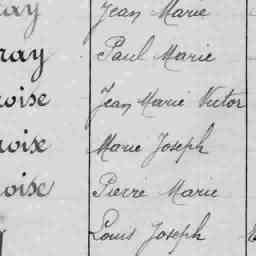 ray Jean Marie
ray Paul Marie
roise Jean Marie Victor
roix Marie Joseph
roix Pierre Marie
Louis Joseph